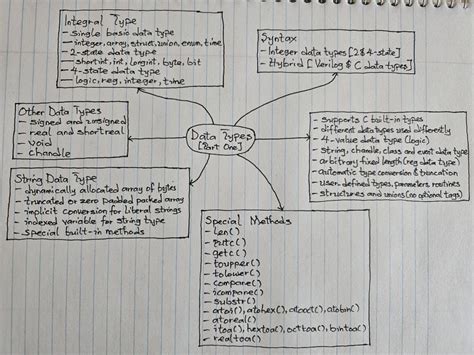 Integral Type
- single basic data type
- integer, array, struct, union, enum, time
- 2-state data type
- shortint, int, longint, byte, bit
- 4-state data type
- logic, reg, integer, time
Syntax
- Integer data types [2&4-state]
- Hybrid [Verilog & C data types]
Other Data Types
- signed and unsigned
- real and shortreal
- void
- chandle
Data Types
[Part One]
- supports C built-in types
- different data types used differently
- 4-value data type (logic)
- string, chandle, class and event data type
- arbitrary fixed length (reg data type)
- automatic type conversion & truncation
- user-defined types, parameters, routines
- structures and unions (no optional tags)
String Data Type
- dynamically allocated array of bytes
- truncated or zero padded packed array
- implicit conversion for literal strings
- indexed variable for string type
- special built-in methods
Special Methods
- len()
- putc()
- getc()
- toupper()
- tolower()
- compare()
- icompare()
- substr()
- atoi(), atohex(), atooct(), atobin()
- atoreal()
- itoa(), hextoa(), octtoa(), bintoa()
- realtoa()